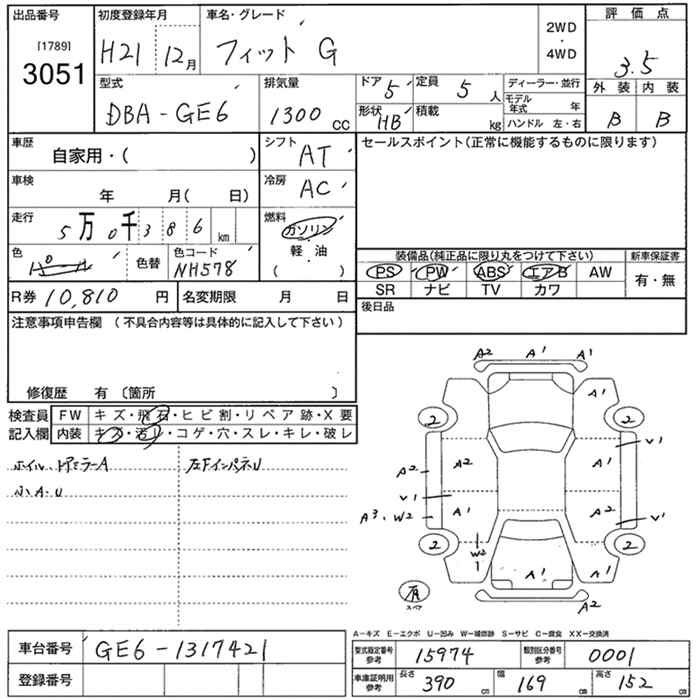 出品番号 初度登録年月 車名・グレード 2WD・4WD 評価点
[1789]
3051 H21 12月 フィット G 3.5
型式 排気量 ドア 5 定員 5 人 ディーラー・並行 外装 内装
DBA-GE6 1300 cc 形状 HB 積載 kg モデル年式 年 B B
ハンドル 左・右
車歴 シフト セールスポイント(正常に機能するものに限ります)
自家用・( ) AT
車検 年 月( 日) 冷房 AC
走行 5万0千386km 燃料 ガソリン
軽・油
( )
色 色替 色コード NH578 装備品(純正品に限り丸をつけて下さい) 新車保証書
PS PW ABS エアB AW 有・無
SR ナビ TV カワ
R券 10,810 円 名変期限 月 日 後日品
注意事項申告欄 (不具合内容等は具体的に記入して下さい)
修復歴 有 〔箇所 〕
検査員 FW キズ・飛石・ヒビ割・リペア跡・X要
記入欄 内装 キズ・汚れ・コゲ・穴・スレ・キレ・破レ
ホイル、ドアミラーA 左下インパネU
小A.U
A2 A1 A1
A1
2 2
V1
A2 A2 A1
V1 A1 A2
A3、W2 V1
2 W2 2
1 A1 A1
スペア A2
A-キズ E-エクボ U-凹み W-補修跡 S-サビ C-腐食 XX-交換済
車台番号 GE6-1317421 型式指定番号 参考 15974 類別区分番号 参考 0001
登録番号 車庫証明用 参考 長さ 390 cm 幅 169 cm 高さ 152 cm